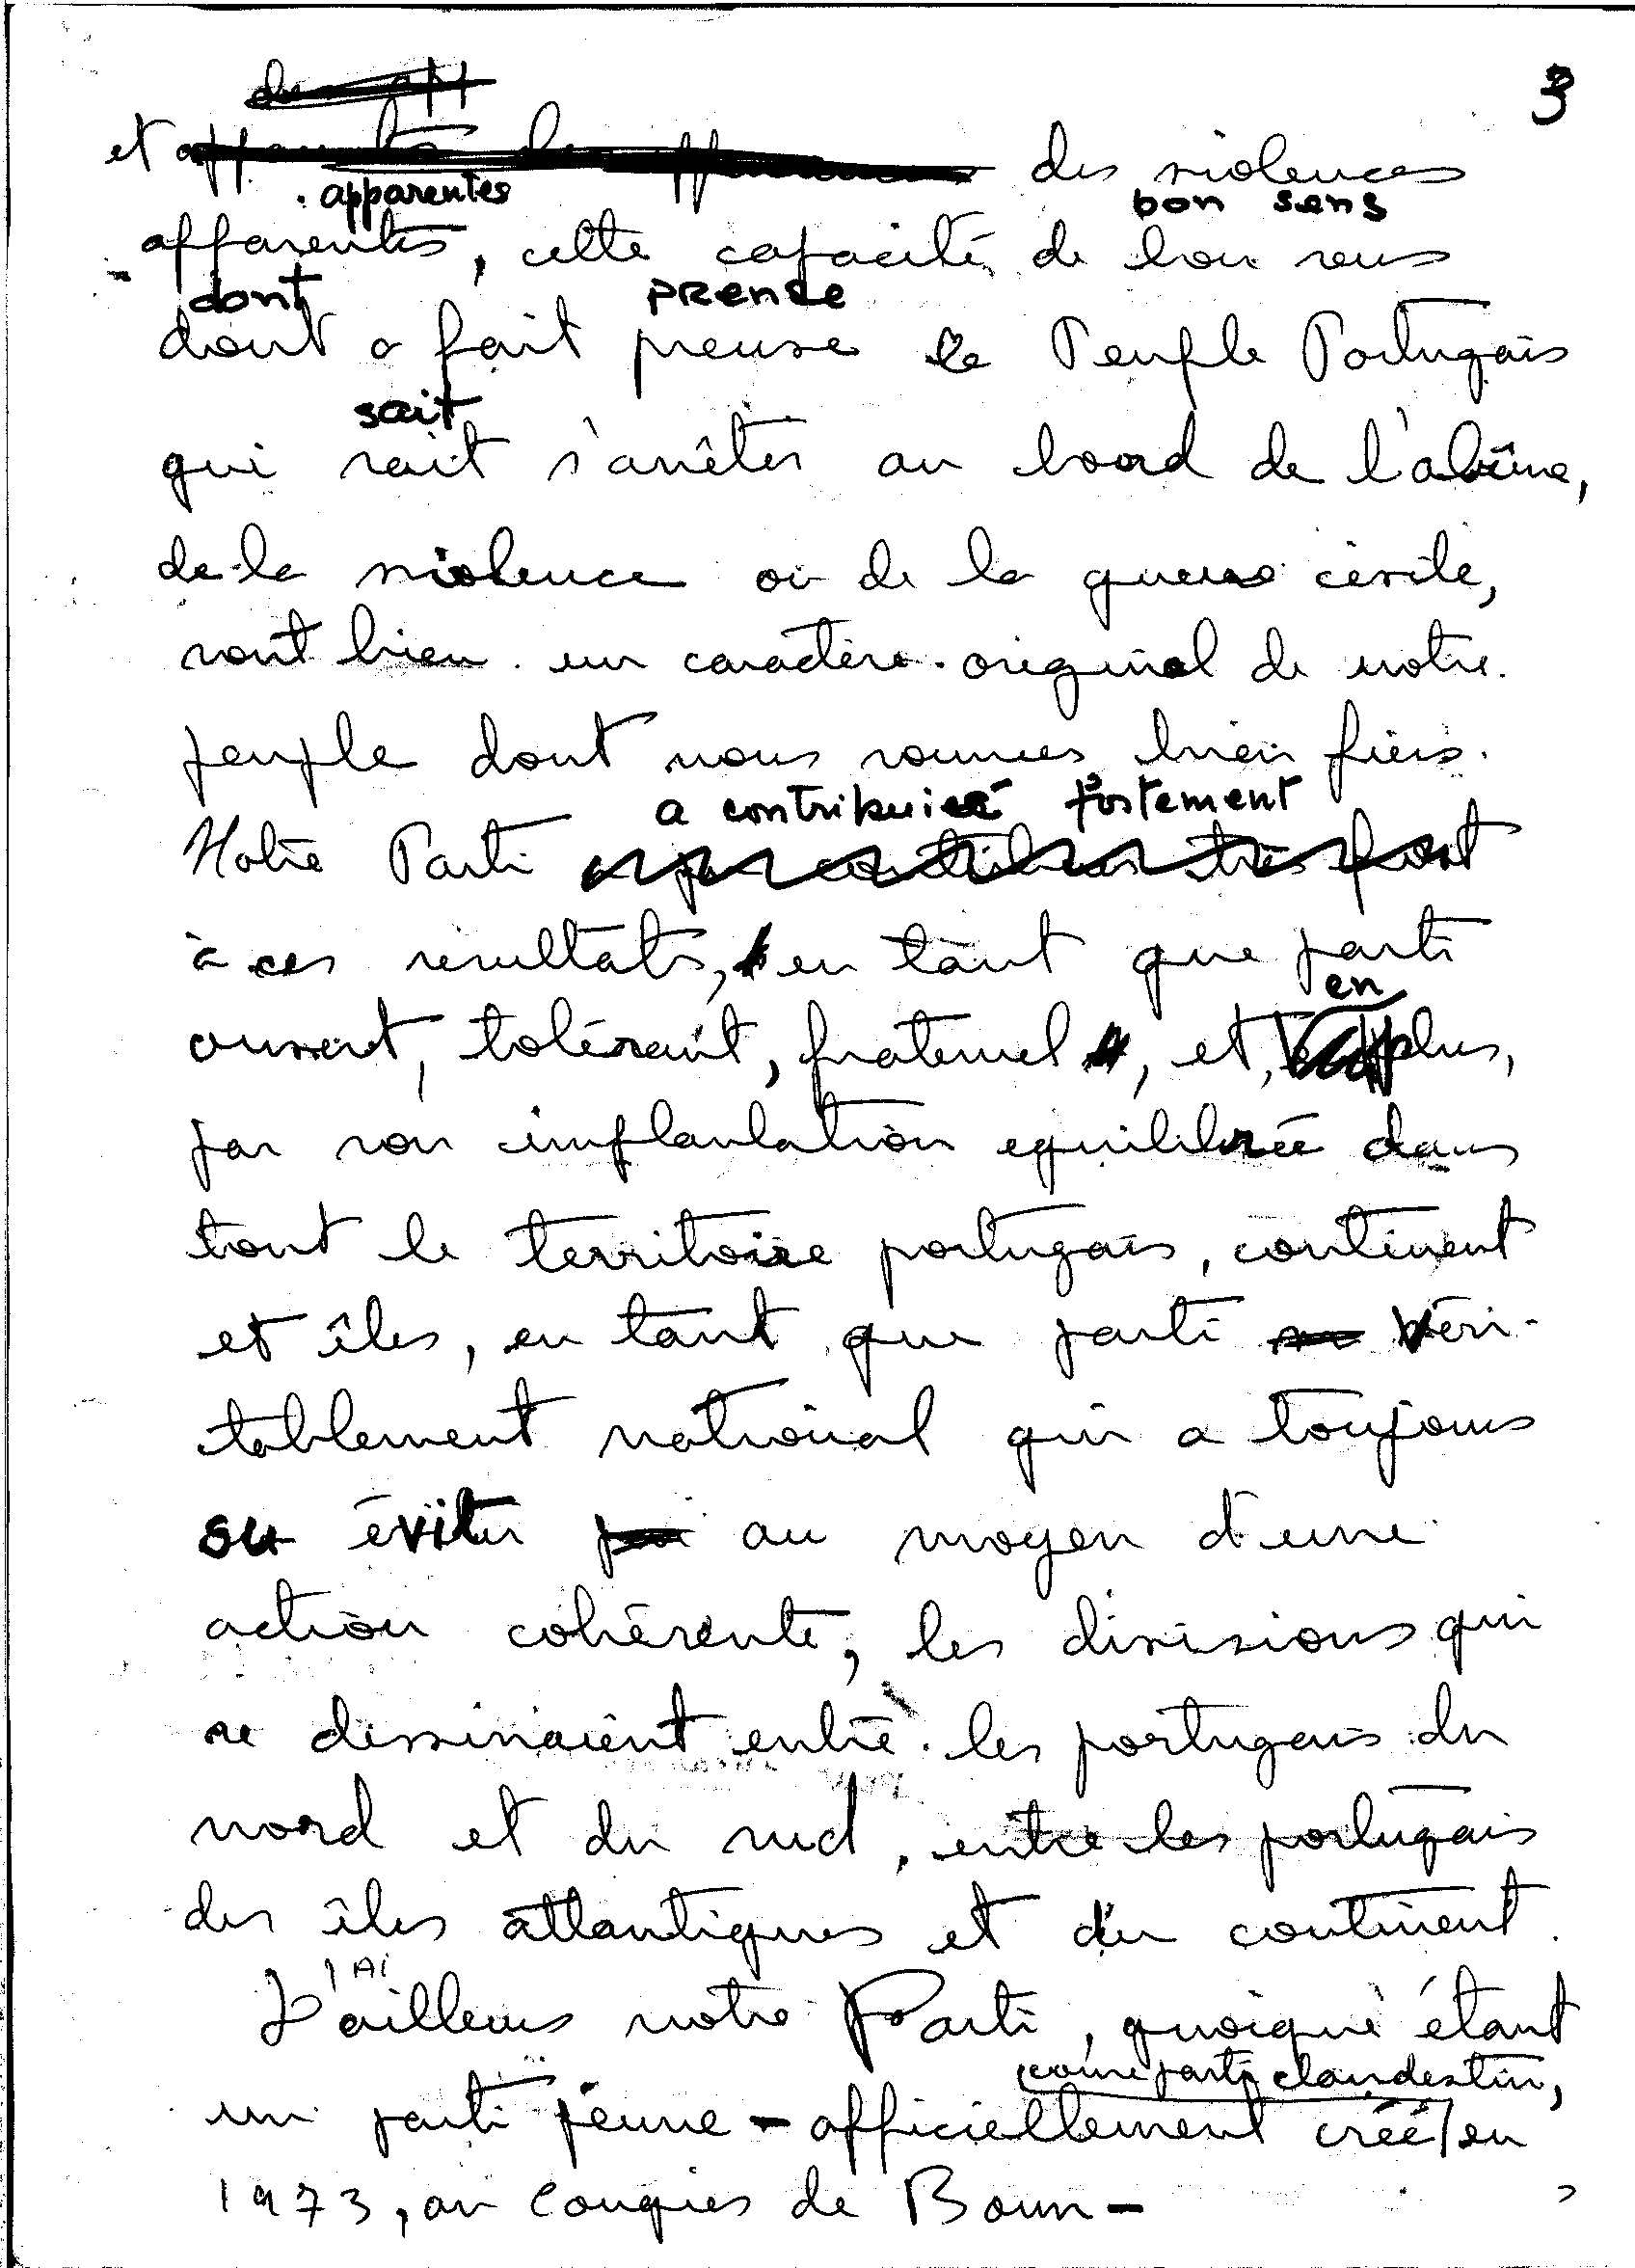 3
et des violences
apparentes bon sens
apparentes, cette capacité de bon sens
dont preuve
dont a fait preuve le Peuple Portugais
sait
qui sait s'arrêter au bord de l'abîme,
de la violence ou de la guerre civile,
sont bien un caractère original de notre
peuple dont nous sommes bien fiers.
a contribuié fortement
Notre Parti
à ces résultats, en tant que parti
en
ouvert, tolérant, fraternel, et, plus,
par son implantation equilibrée dans
tout le territoire portugais, continent
et îles, en tant que parti véri-
tablement national qui a toujours
su éviter au moyen d'une
action cohérente, les divisions qui
se dessinaient entre les portugais du
nord et du sud, entre les portugais
des îles atlantiques et du continent.
D'ailleurs notre Parti, quoique étant
comme parti clandestin,
un parti jeune - officiellement créé en
1973, au Congrès de Bonn -